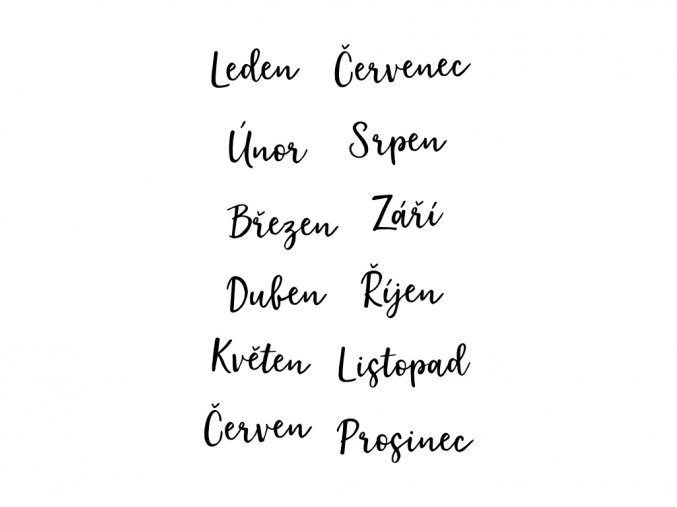 Leden Červenec
Únor Srpen
Březen Září
Duben Říjen
Květen Listopad
Červen Prosinec